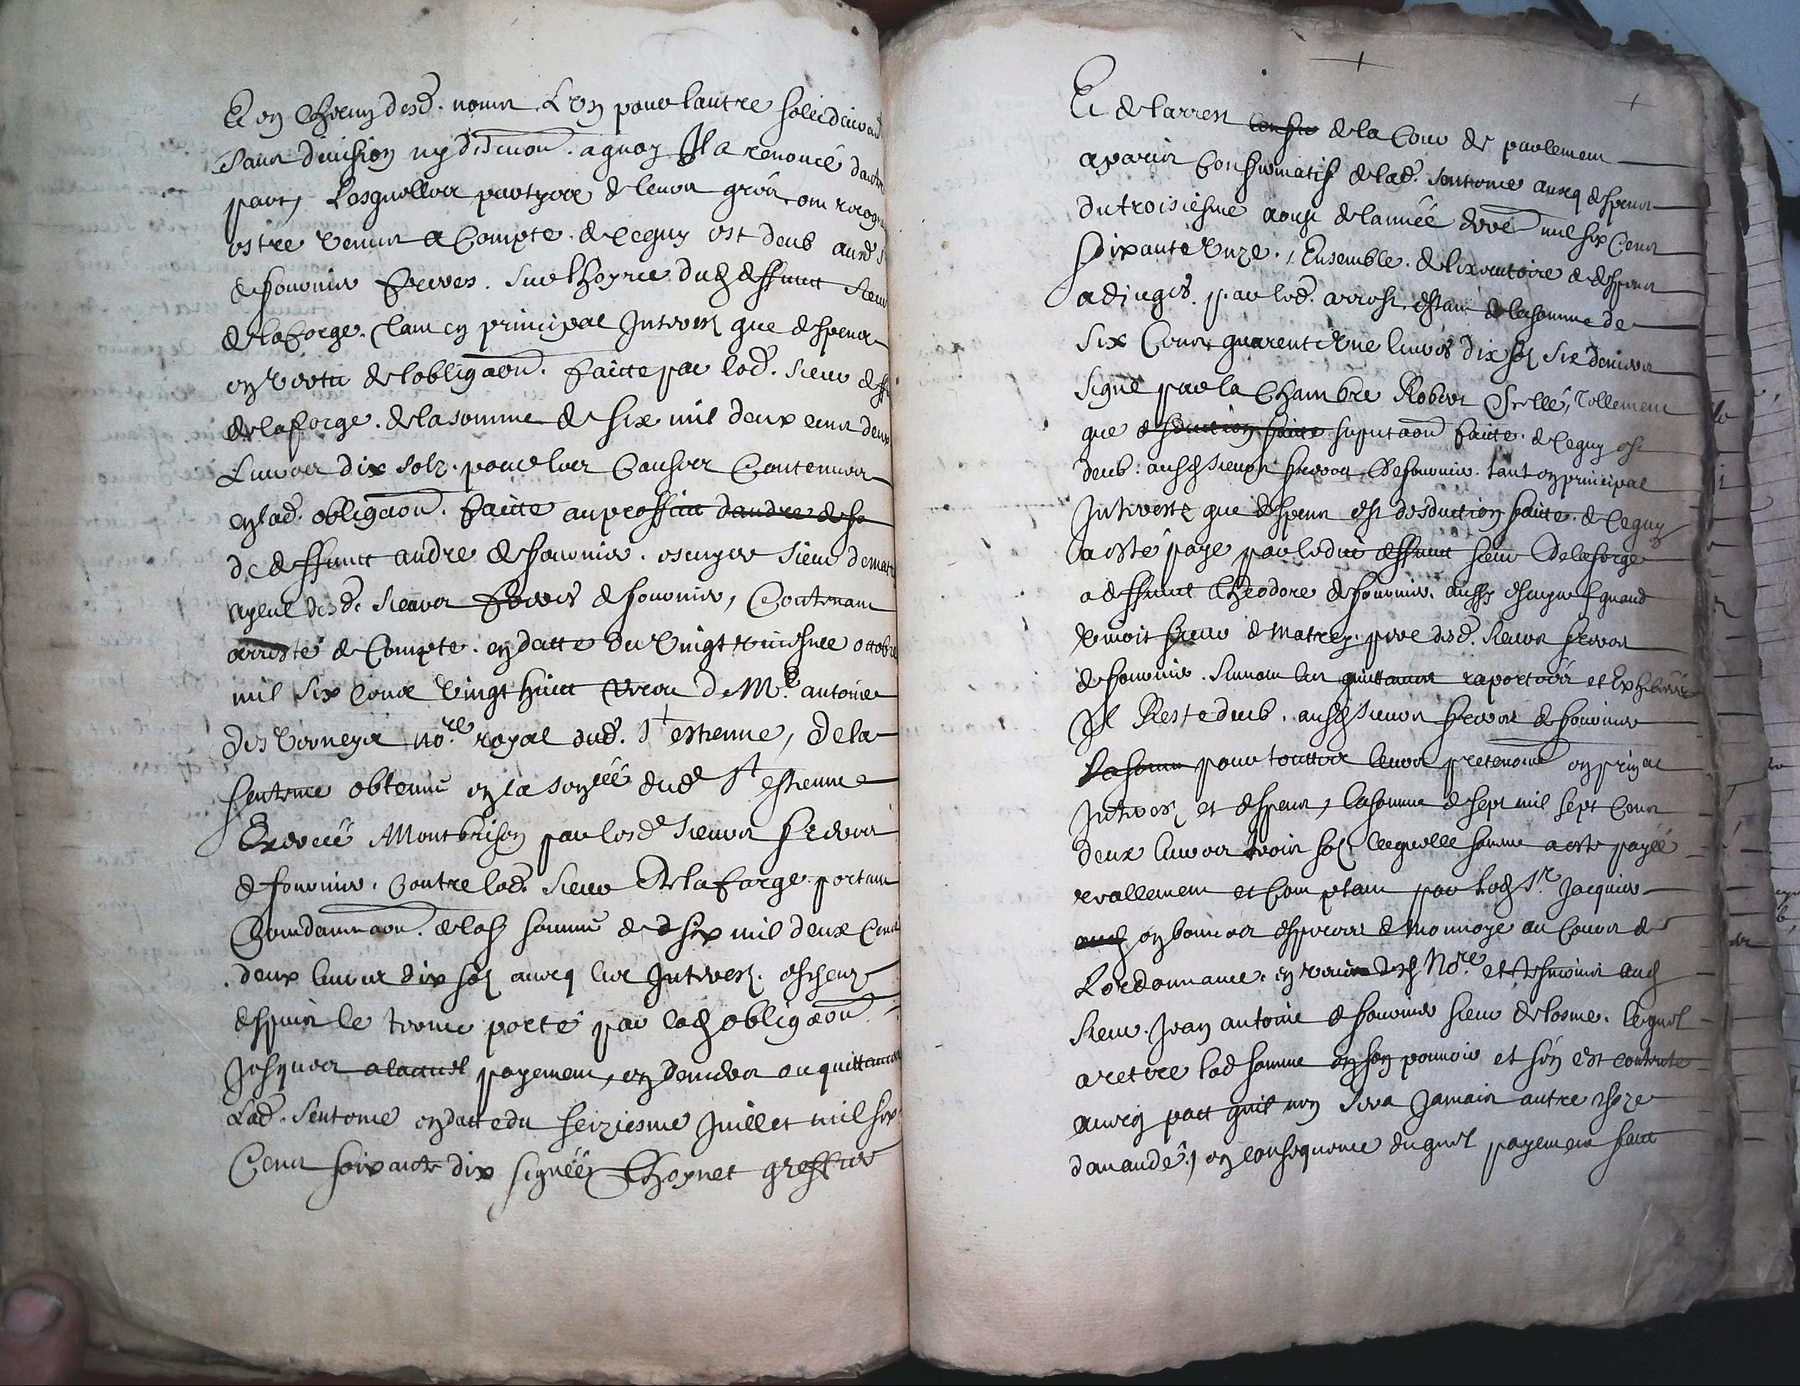 Et en chacung desd. noms L'ung pour lautre solidairemt
sans division ny discution. aquoy Il a renoncé dautre
part, Lesquelles partyes de leurs grés ont recog
estre venus a Compte. de ce quy est deub ausd. s
de fournier freres. sur lhoyrie dud deffunct sieur
de la forge. tant en principal Interest que despens
en vertu de lobliga͠on. faitte par led. sieur deff
de la forge. de la somme de six mil deux cent deux
Livres dix solz. pour les causes contenues
en lad. obliga͠on. faitte au proffict dandre de fo
de deffunct andre de fournier. escuyer sieur de matr
ayeul desd. sieurs freres de fournier, Contenant
arresté de Compte. en datte du vingt huictiesme octobre
mil six cens vingt huict receu de Me. antoine
des verneys nore. royal dud. St estienne, de la
sentence obtenue en la senéé dud St estienne
Exercéé a Montbrison par lesd sieurs freres
de fournier. contre led. sieur de la forge portant
Condamna͠on. de lad somme de six mil deux Cens
deux livres dix solz avecq les Interest. escheuz
despuis le terme porté par lad obliga͠on
jusques a lactuel payement, en deniers ou quittances
Lad. sentence en datte du seiziesme Juillet mil six
Cent soixante dix signéé Choynet greffier
Et de larrest de la Cour de parlement
a paris Confirmatif de lad. sentence avecq despens
du troisiesme aoust de lannéé dud mil six Cens
soixante unze., Ensemble. de lexecutoire de despens
adjugés. par led. arrest, estant de la somme de
six Cens quarente une livres dix solz six deniers
signé par la Chambre Robert tellement
que suputa͠on faitte. de ce quy est
deub. ausd sieurs freres de fournier. tant en principal
Interestz que despens est desduction faitte. de ce quy
a esté payé par ledit deffunct sieur de la forge
a deffunct theodore de fournier. aussy escuyer quand
vivoit sieur de matrey. pere desd. sieurs freres
de fournier. suivant les quittances raportéés et Exhibéés
Il Reste deub. ausd sieurs freres de fournier
La somm pour touttes leurs pretentions en prinal
Interest et despens, la somme de sept mil sept Cens
deux livres trois solz laquelle somme a esté payéé
reallement et Comptant par led Sr. Jacquier
en bonnes especes de monnoye au Cours de
Lordonnance. en veue desd Nore. et tesmoins aud
sieur. Jean antoine de fournier sieur de losme. lequel
a retire lad somme en son pouvoir et s'en est contente
avecq pact quil n'en sera Jamais autre choze
demandé., en consequence duquel payement faict